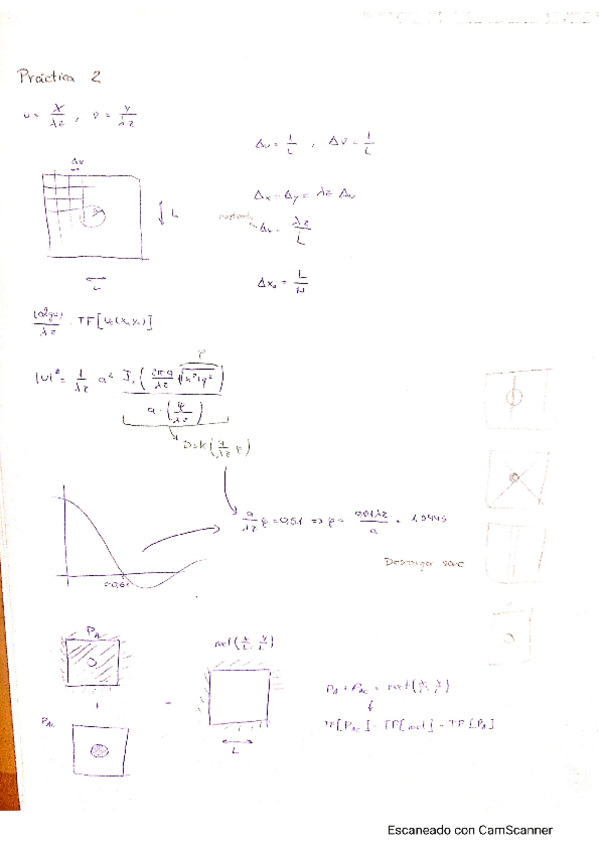 Práctica 2
u = x/λz , v = y/λz
Δu = 1/L , Δv = 1/L
Δu
L
Δx = Δy = λz Δu
Δx = λz/L
L
Δx₀ = L/N
/λz · TF[U₀(x₀,y₀)]
ρ
|U|² = 1/λz a² J₁(2πa/λz √x²+y²)
a · (ρ/λz)
(a/λz ρ)
a/λz ρ = 0,61 => ρ = 0,61λz/a = 1,5445
0,61
Descargar
P_A
rect(x/L, y/L)
+
=
P_A + P_Ac = rect(x/L, y/L)
TF[P_Ac] = TF[rect] - TF[P_A]
P_Ac
L
Escaneado con CamScanner